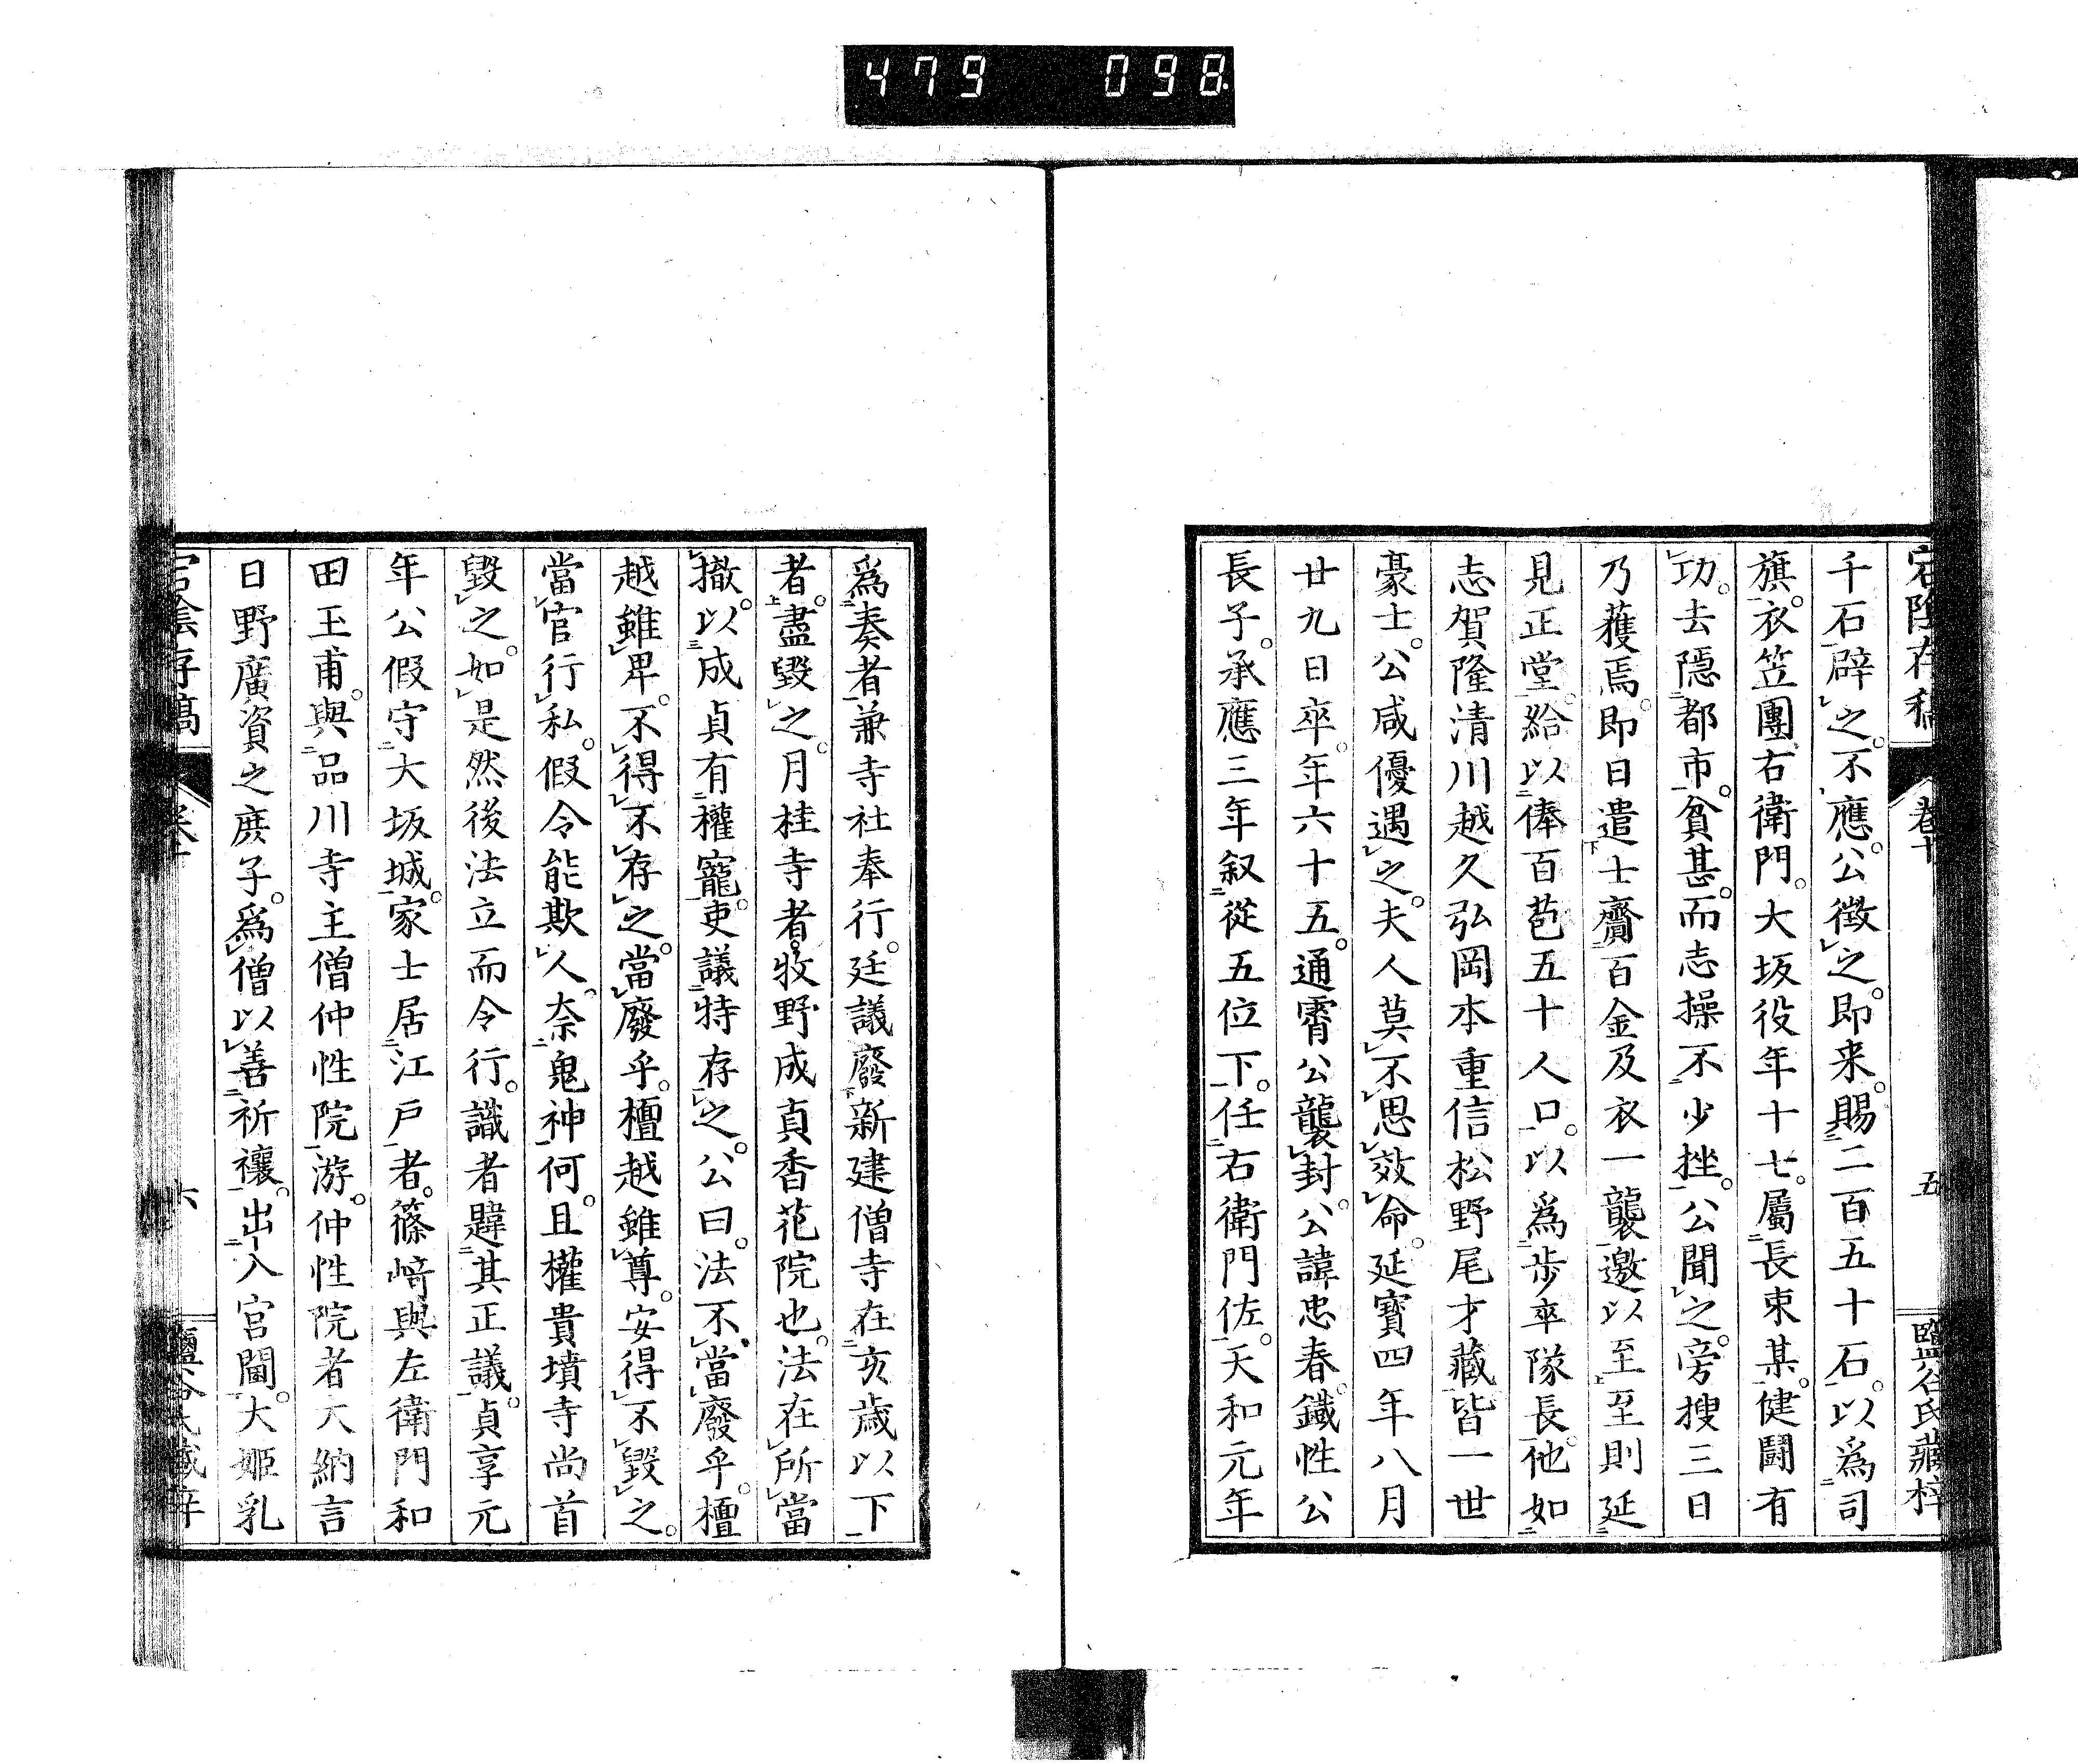 479 098
宕陰存稿 卷十 五 鹽谷氏藏梓
千石辟之。不應。公徴之。即来。賜二百五十石。以爲司
旗。衣笠團右衛門。大坂役年十七。屬長束某。健鬪有
功。去隱都市。貧甚。而志操不少挫。公聞之。旁搜三日
乃獲焉。即日遣士齎百金及衣一襲邀以至至則延
見正堂。給以俸百苞五十人口。以爲步卒隊長。他如
志賀隆清川越久弘岡本重信松野尾才藏皆一世
豪士。公咸優遇之。夫人莫不思效命。延寶四年八月
廿九日卒。年六十五。通霄公襲封。公諱忠春。鐵性公
長子。承應三年叙從五位下。任右衛門佐。天和元年
爲奏者兼寺社奉行。廷議廢新建僧寺在亥歲以下
者。盡毀之。月桂寺者。牧野成貞香花院也。法在所當
撤。以成貞有權寵。吏議特存之。公曰。法不當廢乎。檀
越雖卑。不得不存之。當廢乎。檀越雖尊。安得不毀之。
當官行私。假令能欺人。奈鬼神何。且權貴墳寺尚首
毀之。如是然後法立而令行。識者韙其正議。貞享元
年公假守大坂城。家士居江戸者。篠﨑與左衛門和
田玉甫。與品川寺主僧仲性院游。仲性院者大納言
日野廣資之庶子。爲僧以善祈禳。出入宮闈。大姬乳
宕陰存稿 卷十 六 鹽谷氏藏梓